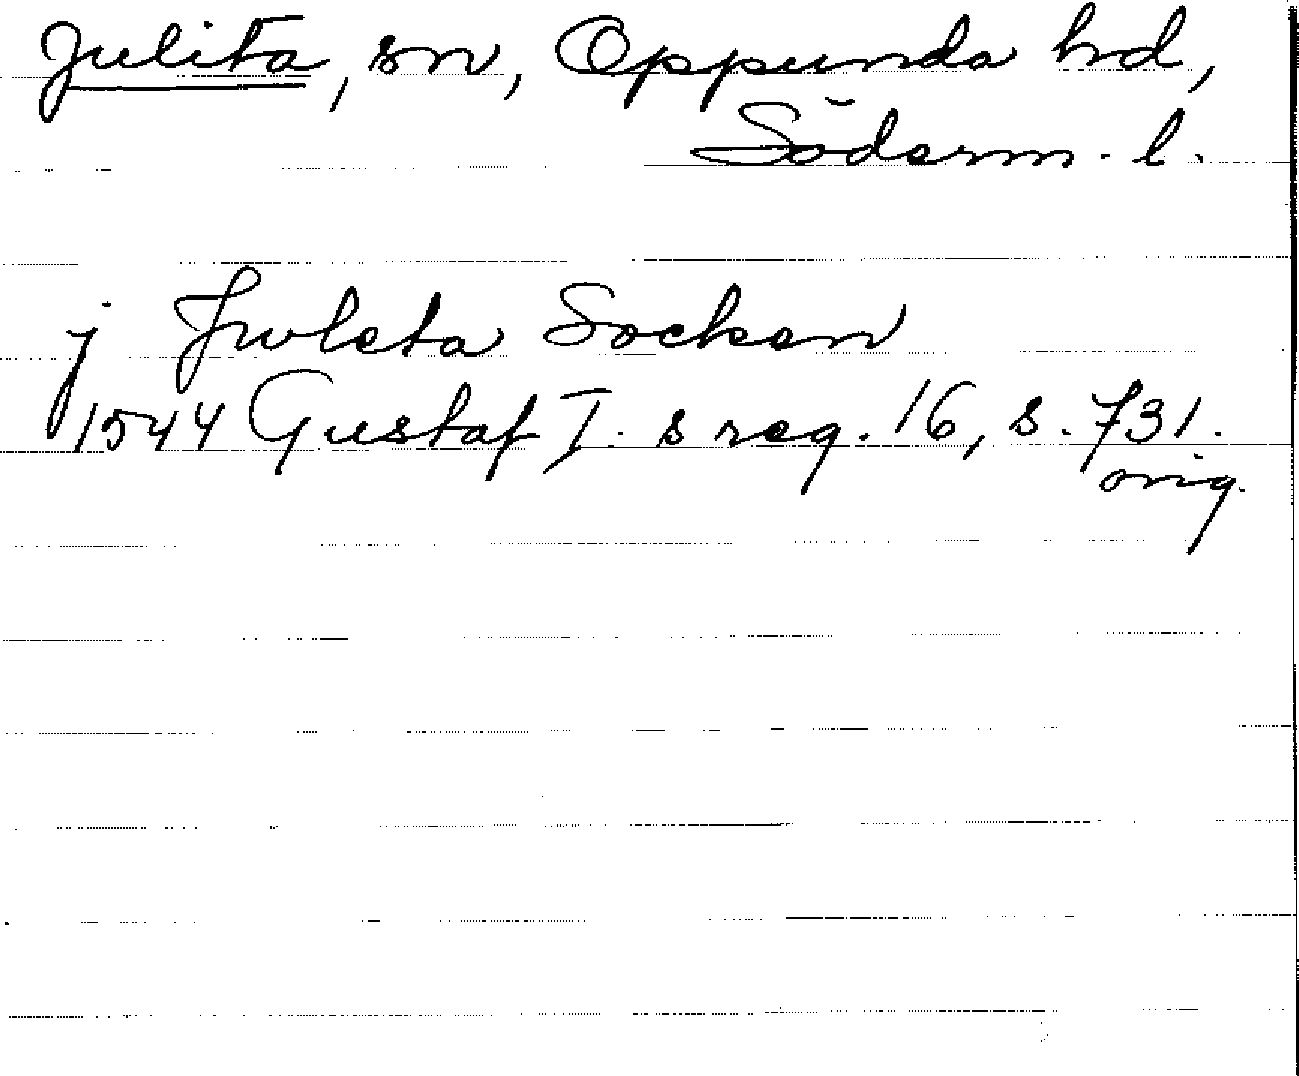 Julita, sn, Oppunda hd,
Söderm. l.
j Jwleta Socken
1544 Gustaf I. s reg. 16, s. 731.
orig.